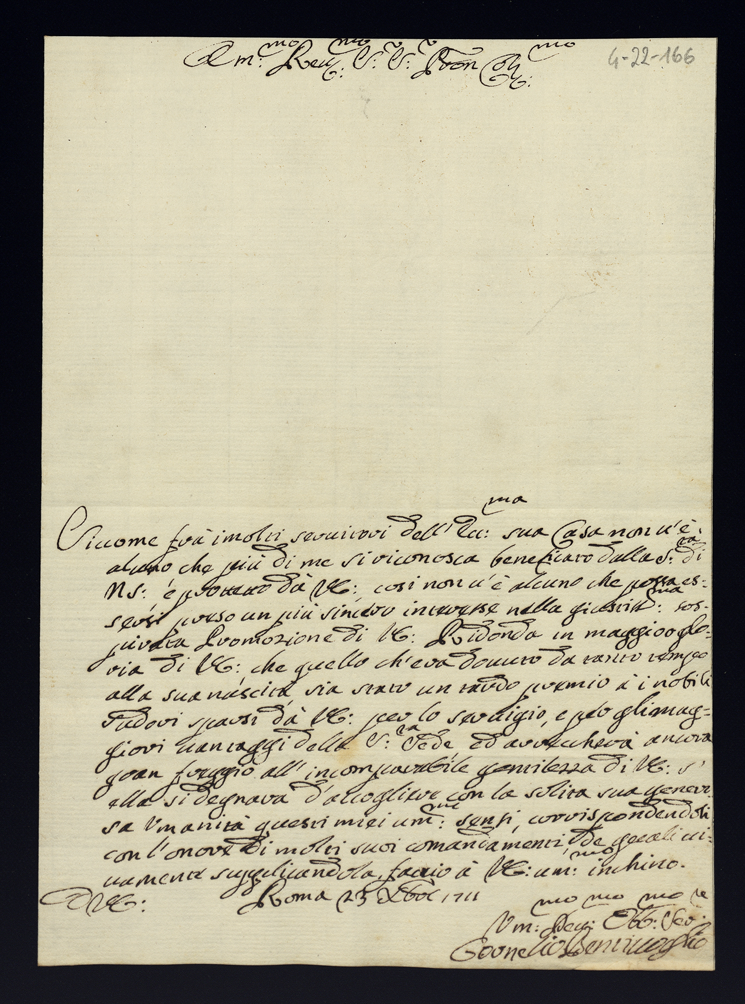 Em:mo Rev:mo S:r S:r Pron Col:mo
4-22-166
Siccome frà i molti servitori dell' Ecc:ma sua Casa non v'è
alcuno che più di me si riconosca beneficato dalla S:tà di
NS: e promosso dà VE: così non v'è alcuno che possa es-
sersi preso un più sincero interesse nella giustiss:ma sos-
pirata Promozione di VE: Ridonda in maggior glo-
ria di VE: che quello ch'era dovuto da tanto tempo
alla sua nascita, sia stato un tardo premio à i nobili
sudori sparsi dà VE: per lo servigio, e per gli mag-
giori vantaggi della S:ta Sede, ed accrescerà ancora
gran freggio all' incomparabile gentilezza di VE: s'
ella si degnarà d'accogliere con la solita sua genero-
sa Umanità questi miei um:mi sensi, corrispondendoli
con l'onore di molti suoi comandamenti, de quali vi-
vamente supplicandola faccio à VE: um:mo inchino.
D VE: Roma 23 Xbre 1711
Um:mo Dev:mo Obb:mo Ser:re
Cornelio Bentivoglio